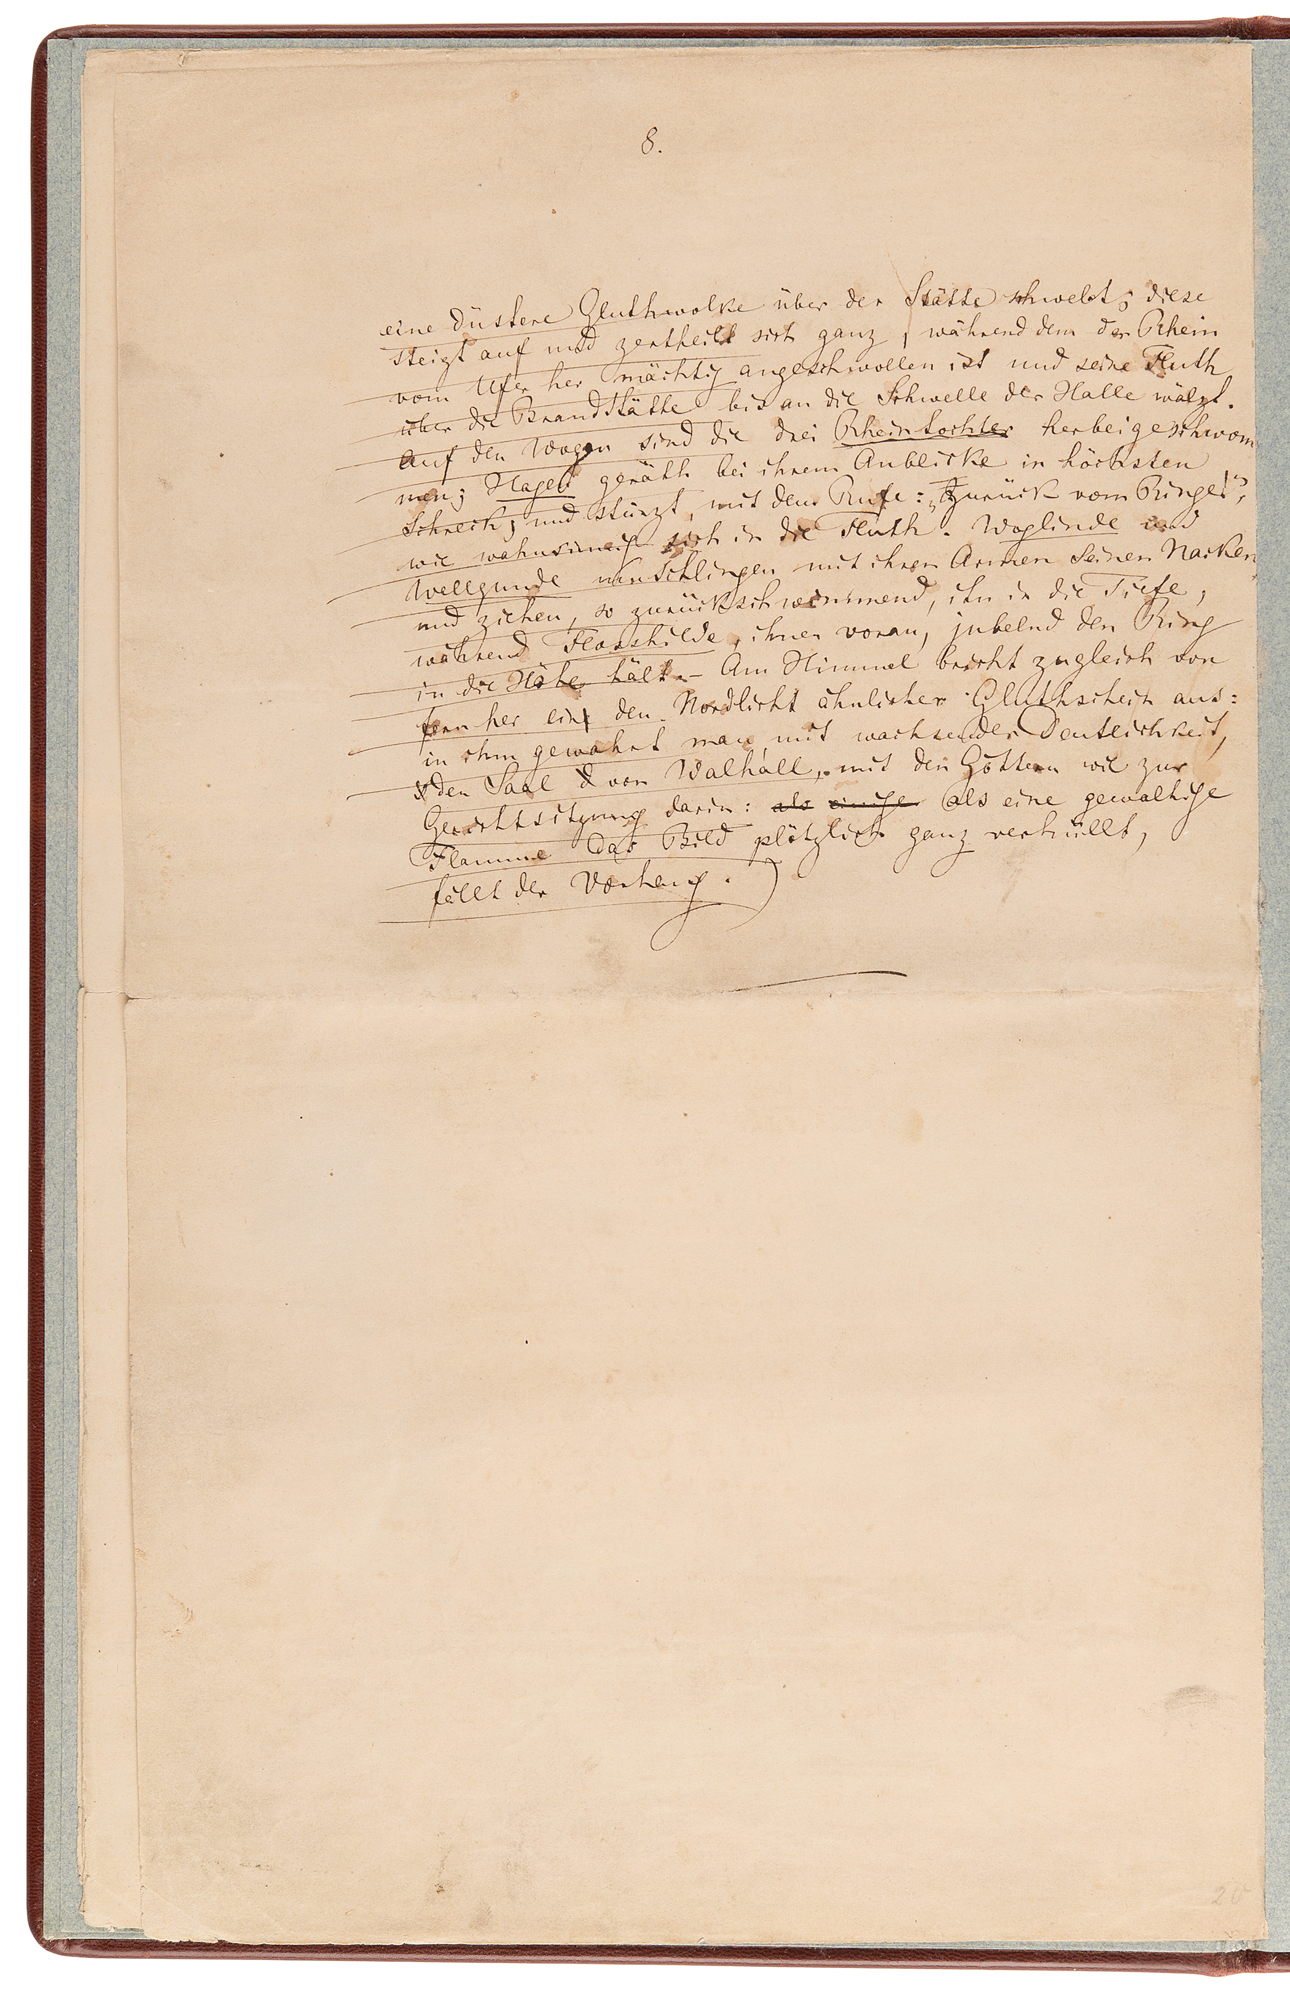 8.
eine düstere Gluthwolke über der Stätte schwebt; diese
steigt auf und zertheilt sich ganz, während dem der Rhein
vom Ufer her mächtig angeschwollen ist und seine Fluth
über die Brandstätte bis an die Schwelle der Halle wälzt.
Auf den Wogen sind die drei Rheintöchter herbeigeschwom
men; Hagen geräth bei ihrem Anblicke in höchsten
Schreck; und stürzt, mit dem Rufe: „Zurück vom Ringe!",
wie wahnsinnig sich in die Fluth. Woglinde und
Wellgunde umschlingen mit ihren Armen seinen Nacken,
und ziehen, so zurückschwimmend, ihn in die Tiefe,
während Flosshilde, ihnen voran, jubelnd den Ring
in die Höhe hält. – Am Himmel bricht zugleich von
fern her ein den Nordlicht ähnlicher Gluthschein aus:
in ihm gewahrt man, mit wachsender Deutlichkeit,
den Saal von Walhall, mit den Göttern wie zur
Gerichtsitzung darin: als einige als eine gewaltige
Flamme das Bild plötzlich ganz verhüllt,
fällt der Vorhang.)
20